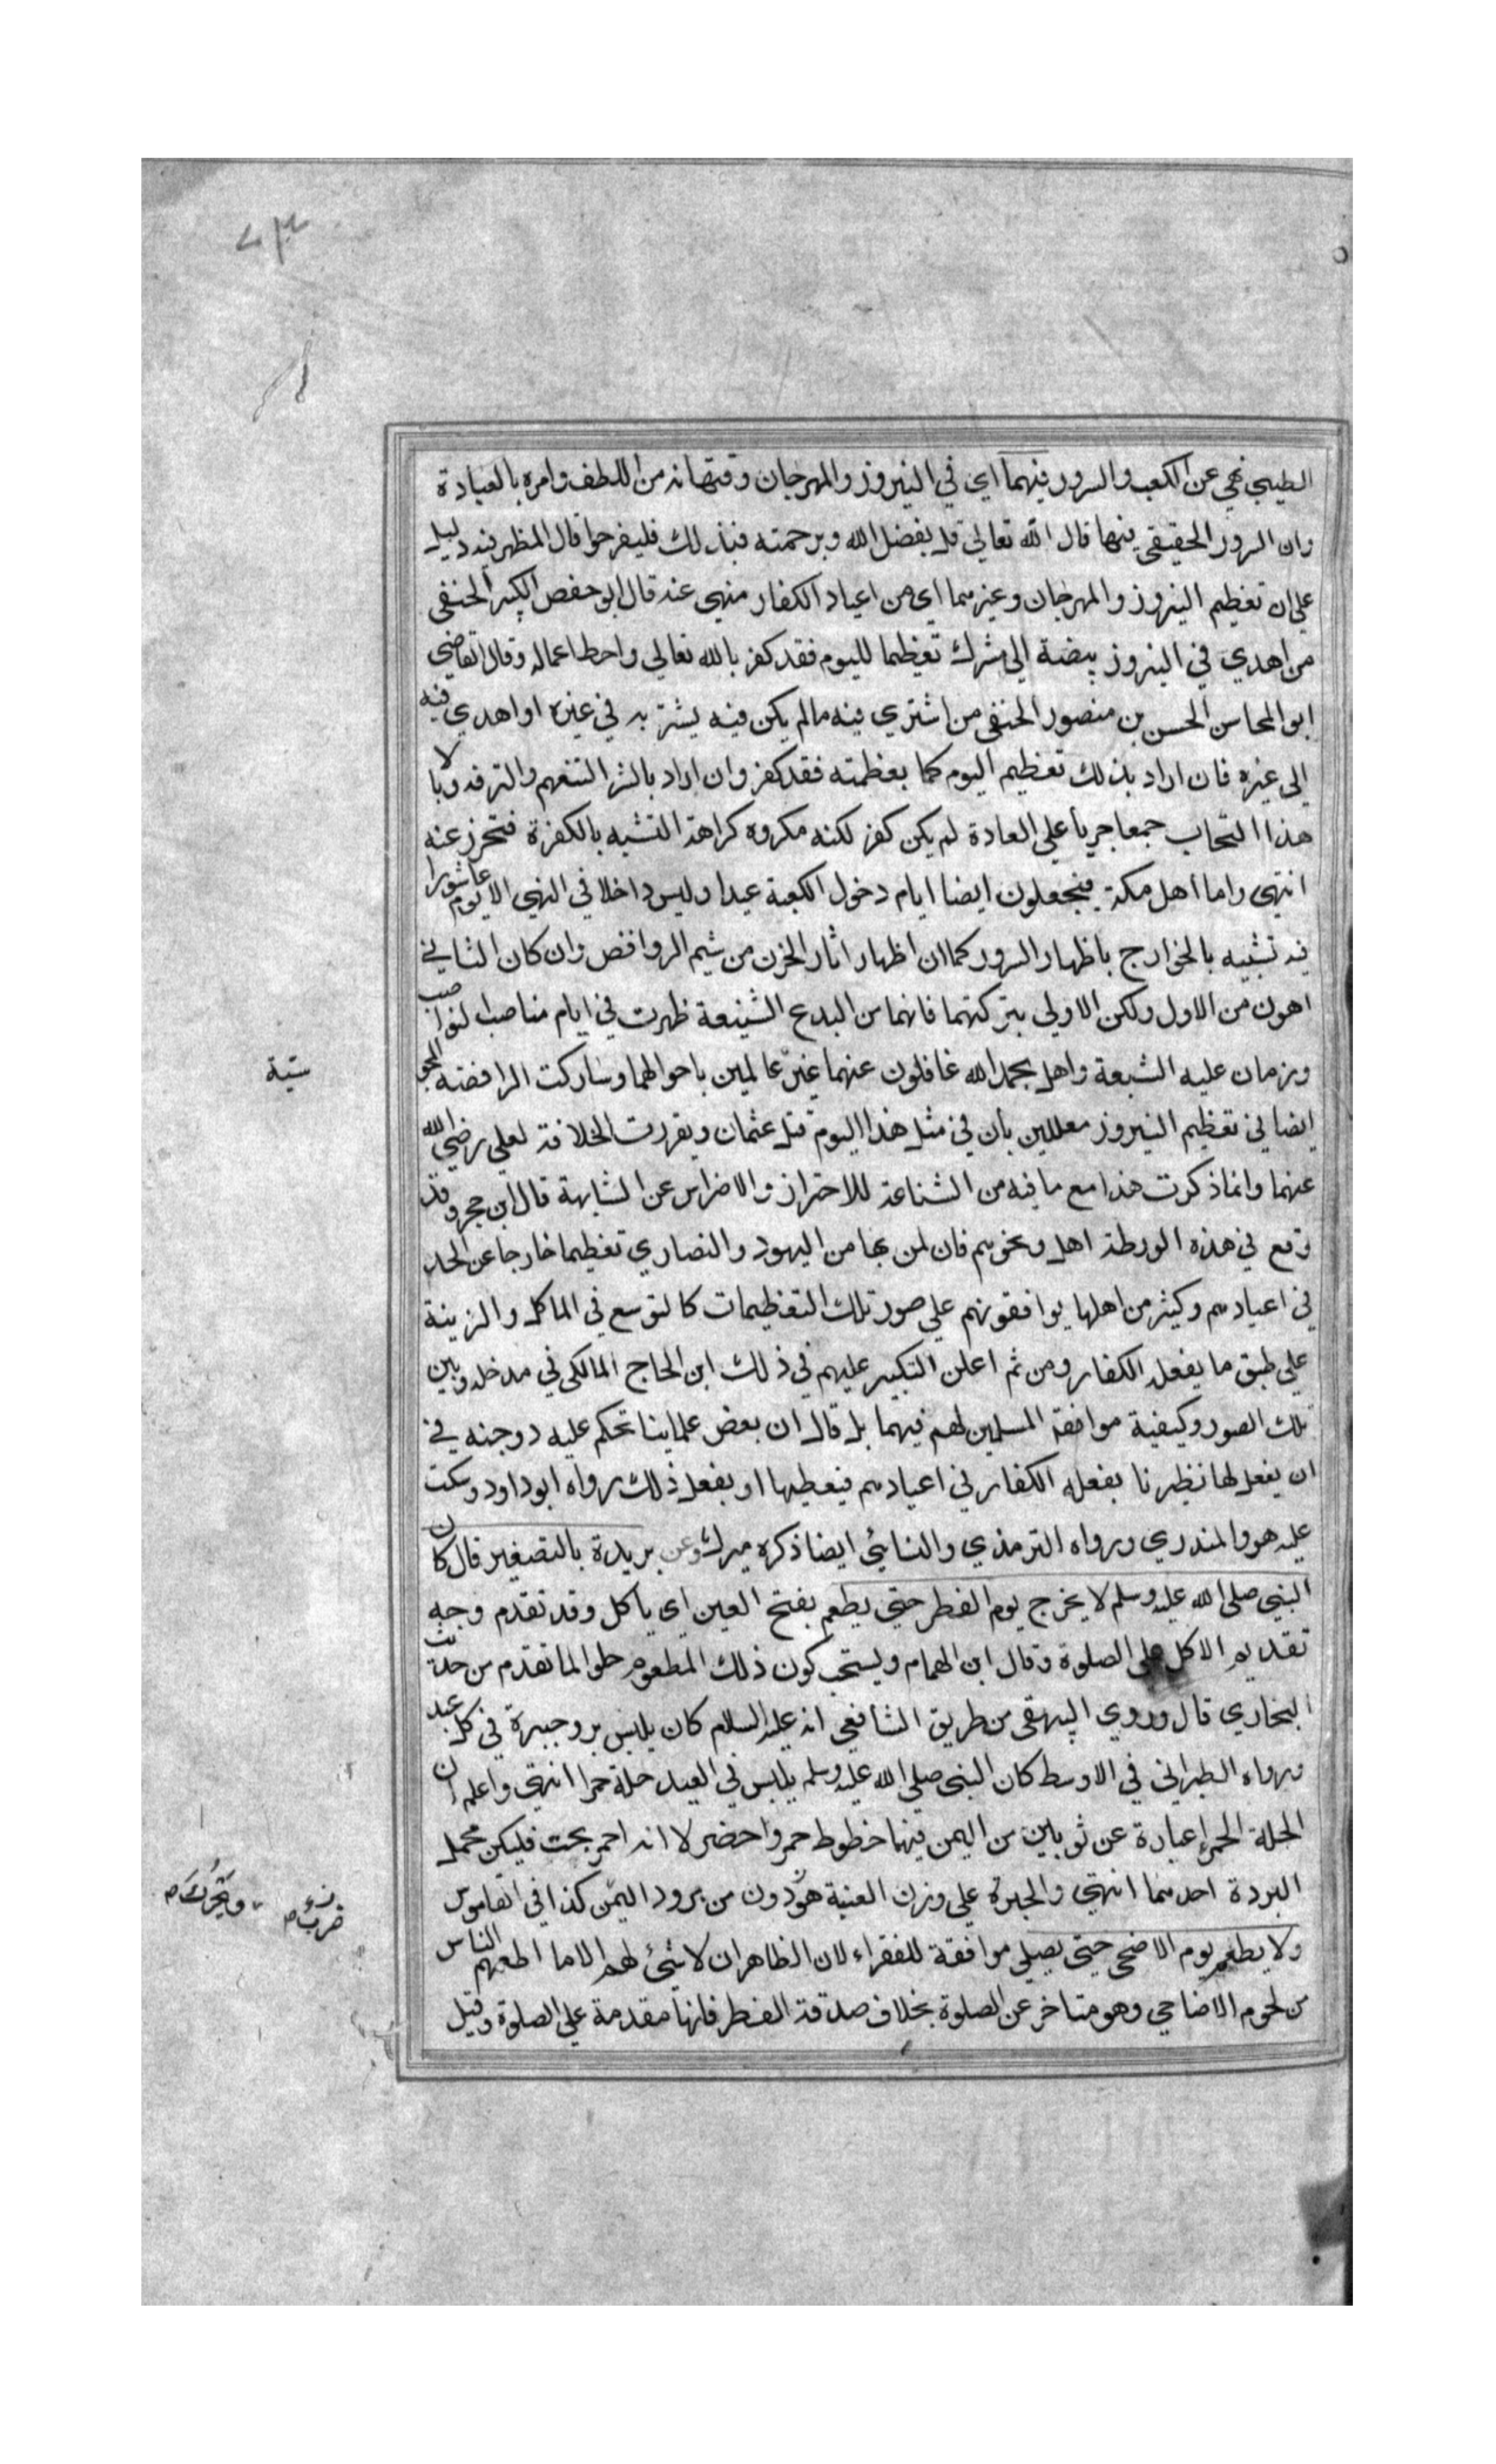 الطيبي نهي عن اللعب والسرور فيهما اي في النيروز والمهرجان وفيه نهاية من اللطف وامره بالعبادة
وان السرور الحقيقي فيها قال الله تعالي قل بفضل الله وبرحمته فبذلك فليفرحوا قال المظهر فيه دليل
علي ان تعظيم النيروز والمهرجان وغيرهما اي من اعياد الكفار منهي عنه قال ابو حفص الكبير الحنفي
من اهدي في النيروز بيضة الي مشرك تعظيما لليوم فقد كفر بالله تعالي واحبط اعماله وقال القاضي
ابو المحاسن الحسن بن منصور الحنفي من اشتري فيه مالم يكن فيه يشتر به في غيره او اهدي فيه
الي غيره فان اراد بذلك تعظيم اليوم كما يعظمته فقد كفر وان اراد بالشرا التنعم والترفه وبالا
هذا التحاب جمعا جريا علي العادة لم يكن كفر لكنه مكروه كراهة التشبه بالكفرة فتحرز عنه
انتهي واما اهل مكة فيجعلون ايضا ايام دخول الكعبة عيدا وليس داخلا في النهي الا يوم عاشورا
فيه تشبيه بالخوارج باظهار السرور كما ان اظهار اثار الحزن من شيم الروافض وان كان الثاني
اهون من الاول ولكن الاولي بتركتهما فانهما من البدع الشنيعة ظهرت في ايام مناصب النواصب
وزمان عليه الشيعة واهل بحمد الله غافلون عنهما غير عالمين باحوالهما وشاركت الرافضة المجو
ستية
ايضا في تعظيم النيروز معللين بان في مثل هذا اليوم قتل عثمان وبقررت الخلافة لعلي رضي الله
عنهما وانما ذكرت هذا مع ما فيه من الشناعة للاحتراز والاضراس عن الشابهة قال ابن حجر وقد
وقع في هذه الورطة اهل ونحوهم فان لمن بها من اليهود والنصاري تعظيما خارجا عن الحد
في اعيادهم وكثير من اهلها يوافقونهم علي صور تلك التعظيمات كالتوسع في الماكل والزينة
علي طبق ما يفعله الكفار ومن ثم اعلن النكير عليهم في ذلك ابن الحاج المالكي في مدخله وبين
تلك الصور وكيفية موافقة المسلمين لهم فيهما بل قال ان بعض علماينا تحكم عليه دوجنه في
ان يفعل لها نظيرنا يفعله الكفار في اعيادهم فيعطيها او يفعل ذلك رواه ابو داود وسكت
عليه هو والمنذري ورواه الترمذي والنسائي ايضا ذكره ميرك وعن بريدة بالتصغير قال كان
النبي صلي الله عليه وسلم لا يخرج يوم الفطر حتي يطعم بفتح العين اي ياكل وقد تقدم وجه
تقديم الاكل علي الصلوة وقال ابن الهمام ويستحب كون ذلك المطعوم حلوا لما تقدم من حديث
البخاري قال وروي البيهقي من طريق الشافعي انه عليه السلام كان يلبس برد حبرة في كل عيد
ورواه الطبراني في الاوسط كان النبي صلي الله عليه وسلم يلبس في العيد حلة حمرا انتهي واعلم ان
الحلة الحمرا عبارة عن ثوبين من اليمن فيهما خطوط حمر واخضر لا انه احمر بحت فليكن محمل
البردة احدهما انتهي والحبرة علي وزن العنبة هو دون من برود اليمن كذا في القاموس
ضرب ويحرك
ولا يطعم يوم الاضحي حتي يصلي موافقة للفقراء لان الظاهر ان لا شئ لهم الا ما اطعمهم الناس
من لحوم الاضاحي وهو متاخر عن الصلوة بخلاف صدقة الفطر فانها مقدمة علي الصلوة وقيل